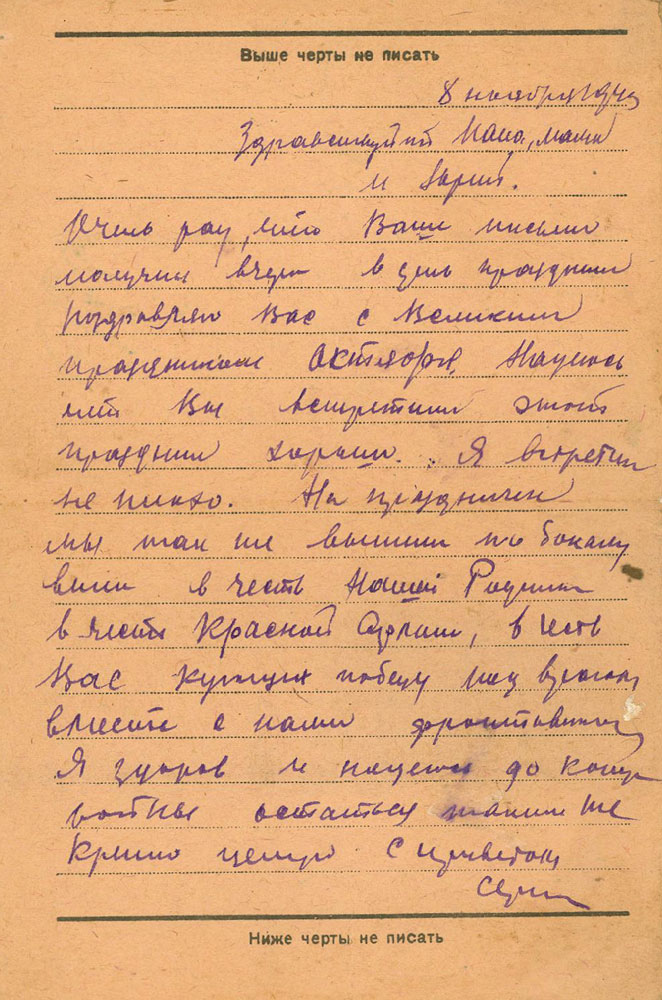 Выше черты не писать
8 ноября 194
Здравствуйти Папа, мама
и
Очень рад, что Ваши письмо
получил вчера в день праздника
Поздравляю Вас с Великим
праздником Октября. Надеюсь
что Вы встретили этот
праздник хорошо. Я встретил
не плохо. На празднике
мы так же выпили по бокалу
вина в честь Нашей Родины
в честь Красной Армии, в честь
Вас кующих победу над врагом
вместе с нами фронтовиками
Я здоров и надеюсь до конца
войны остаться таким же
Крепко целую С приветом
Ниже черты не писать